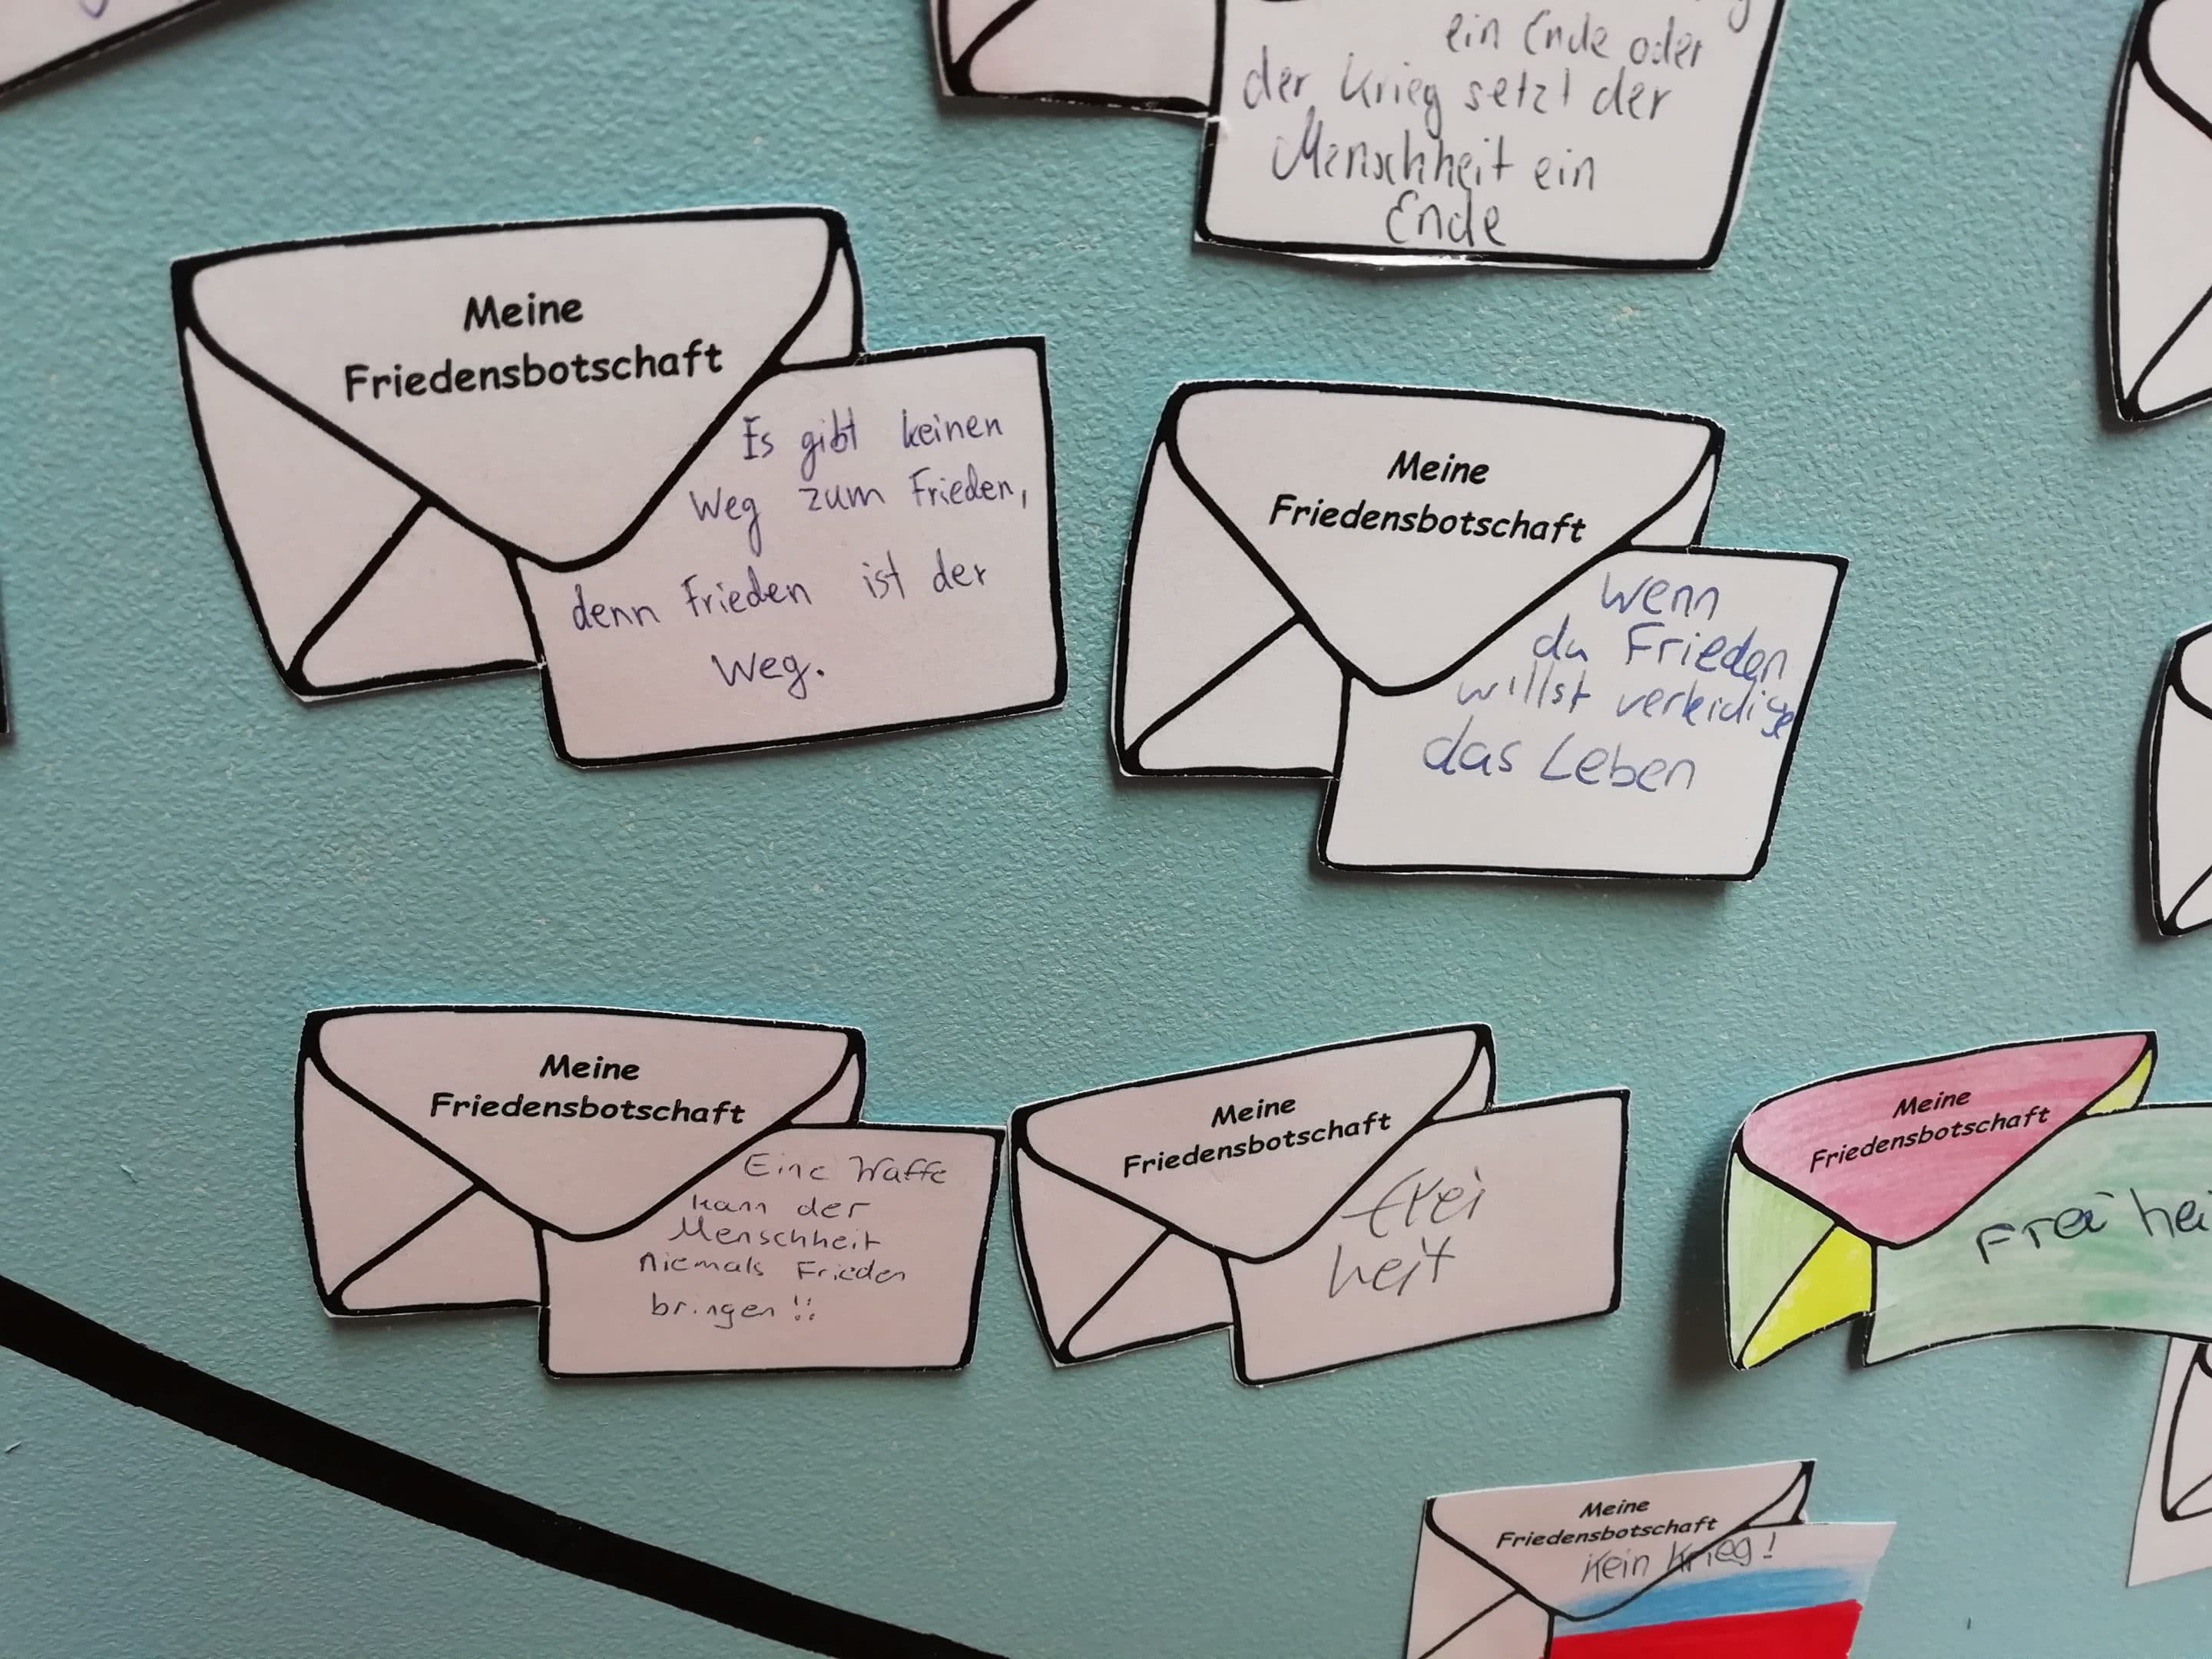 ein Ende oder
der Krieg setzt der
Menschheit ein
Ende
Meine
Friedensbotschaft
Es gibt keinen
Weg zum Frieden,
denn Frieden ist der
Weg.
Meine
Friedensbotschaft
Wenn
du Frieden
willst verteidige
das Leben
Meine
Friedensbotschaft
Eine Waffe
kann der
Menschheit
Niemals Frieden
bringen!!
Meine
Friedensbotschaft
frei
heit
Meine
Friedensbotschaft
Freihei
Meine
Friedensbotschaft
Kein Krieg!